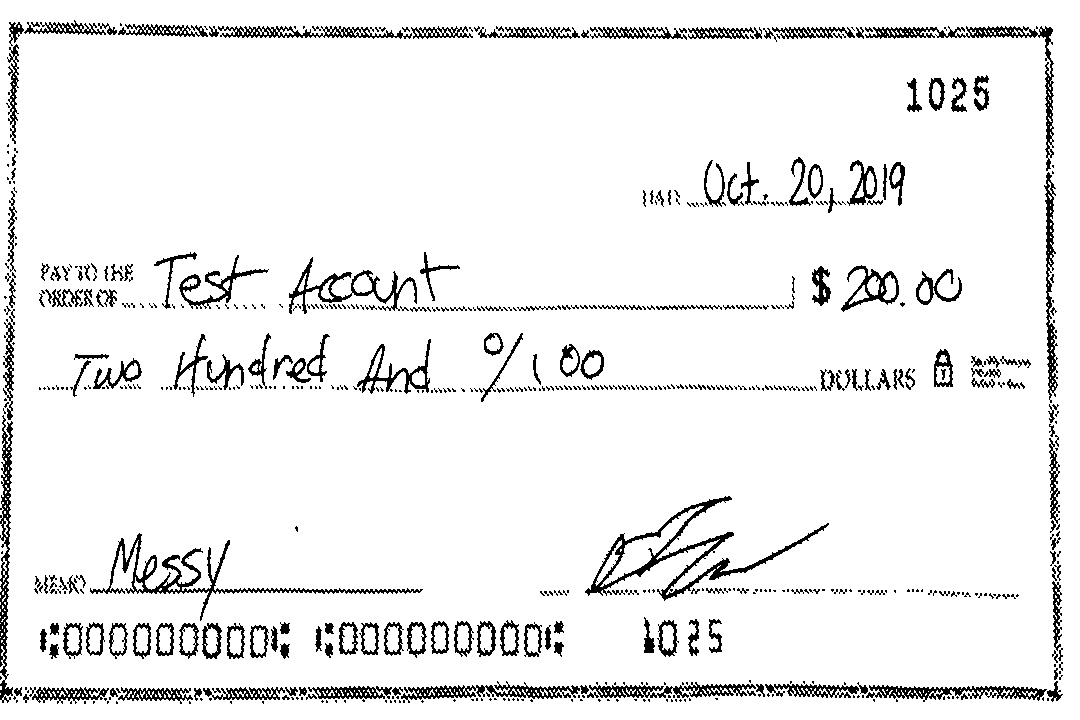 1025
DATE Oct. 20, 2019
PAY TO THE
ORDER OF Test Account $ 200.00
Two Hundred And 0/100 DOLLARS
MEMO Messy
⑆000000000⑆ ⑆000000000⑆ 1025